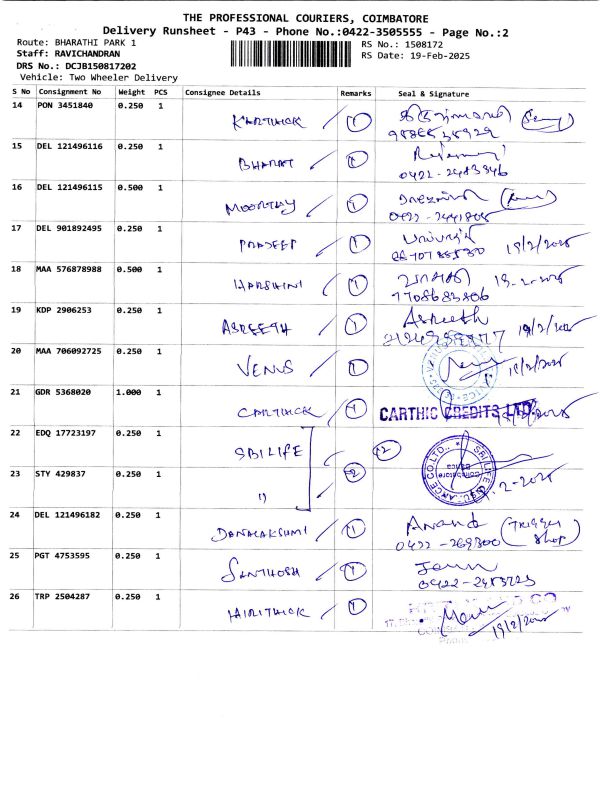 THE PROFESSIONAL COURIERS, COIMBATORE
Delivery Runsheet - P43 - Phone No.:0422-3505555 - Page No.:2
Route: BHARATHI PARK 1
RS No.: 1508172
Staff: RAVICHANDRAN
RS Date: 19-Feb-2025
DRS No.: DCJB150817202
Vehicle: Two Wheeler Delivery
S No Consignment No Weight PCS Consignee Details Remarks Seal & Signature
14 PON 3451840 0.250 1 KARTHICK 1
15 DEL 121496116 0.250 1 BHARAT 1
16 DEL 121496115 0.500 1 MOORTHY 1
17 DEL 901892495 0.250 1 PRADEEP 1 19/2/2025
18 MAA 576878988 0.500 1 HARSHINI 1 19-2-2025
7708683806
19 KDP 2906253 0.250 1 ASREETH 1 Asreeth
19/2/2025
20 MAA 706092725 0.250 1 VENUS 1 19/2/2025
21 GDR 5368020 1.000 1 CARTHICK 1 CARTHIC CREDITS LTD.
22 EDQ 17723197 0.250 1 SBI LIFE 2
23 STY 429837 0.250 1 11 2
24 DEL 121496182 0.250 1 DANALAKSUMI 1 Anand (Trigger Shop)
25 PGT 4753595 0.250 1 SANTHOSH 1
26 TRP 2504287 0.250 1 HAIRITHICK 1
19/2/2025